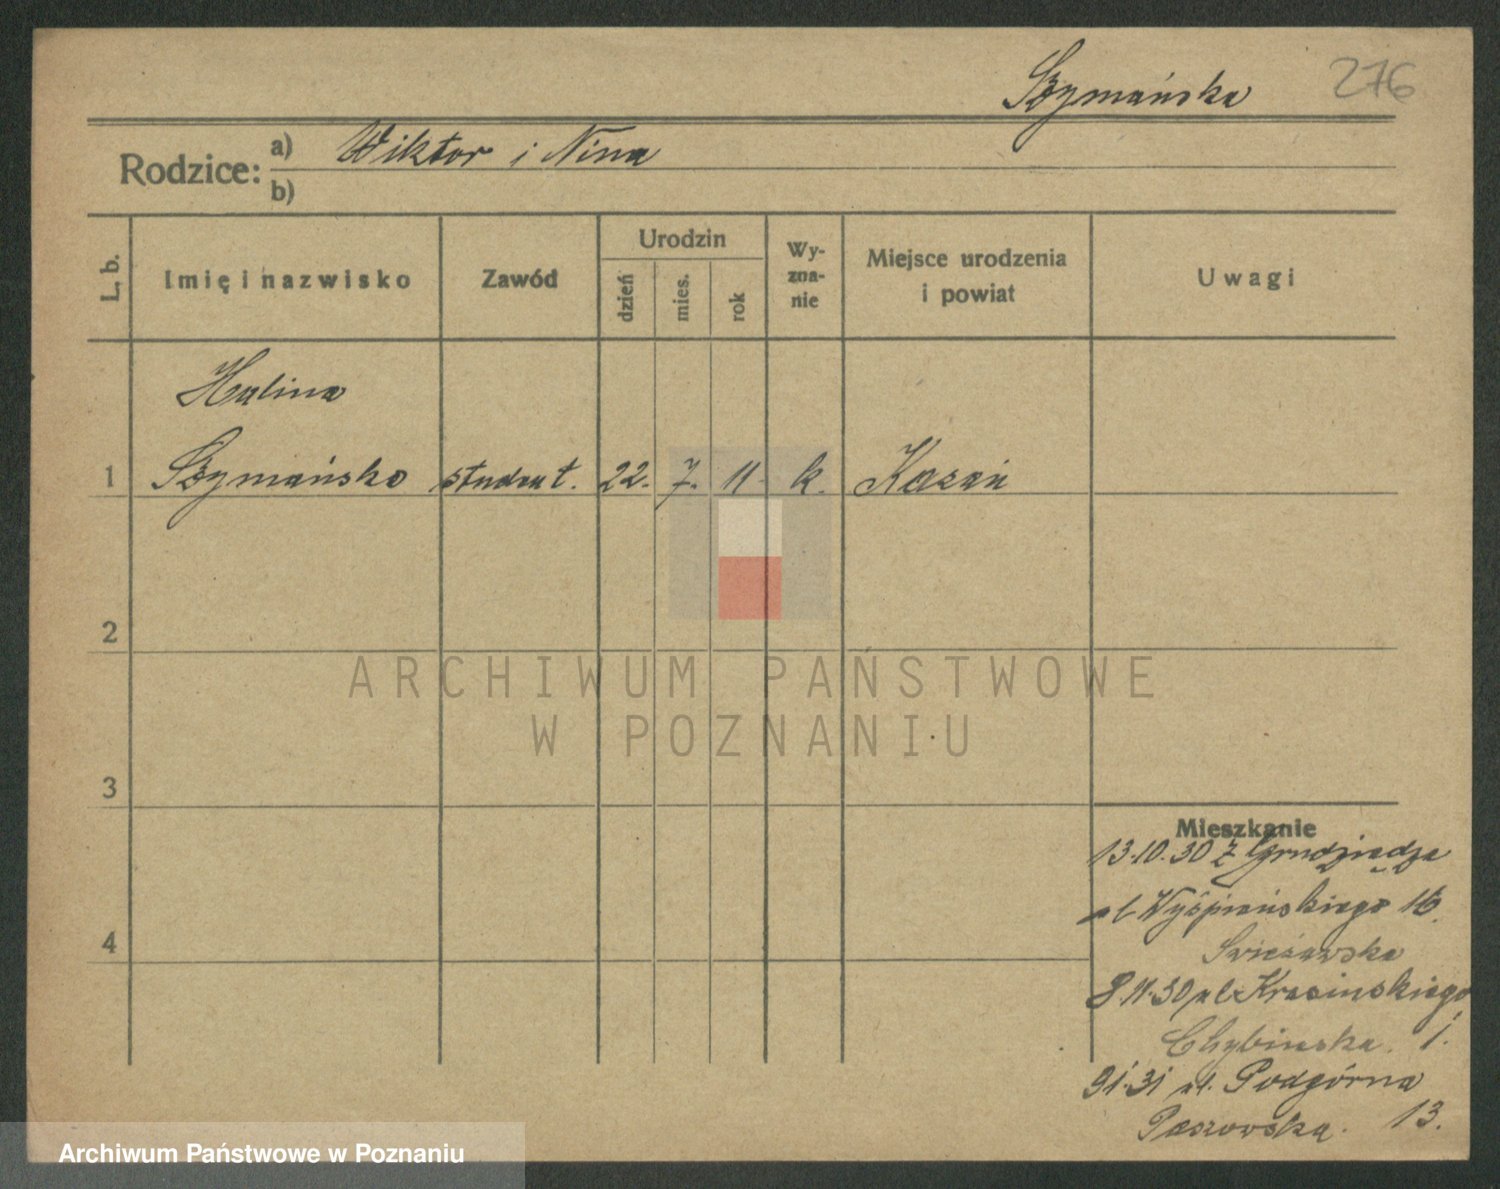 Szymańska 276
Rodzice: a) Wiktor i Nina
b)
L. b. Imię i nazwisko Zawód Urodzin dzień mies. rok Wy-zna-nie Miejsce urodzenia i powiat Uwagi
Halina
1 Szymańska student. 22. 7. 11. k. Kazań
2
ARCHIWUM PAŃSTWOWE
W POZNANIU
3
Mieszkanie
13.10.30 z Grudziądza
ul Wyśpiańskiego 16.
4
8.11.30 ul Krasińskiego
Chybińska. 1.
9.1.31 ul. Podgórna
13.
Archiwum Państwowe w Poznaniu